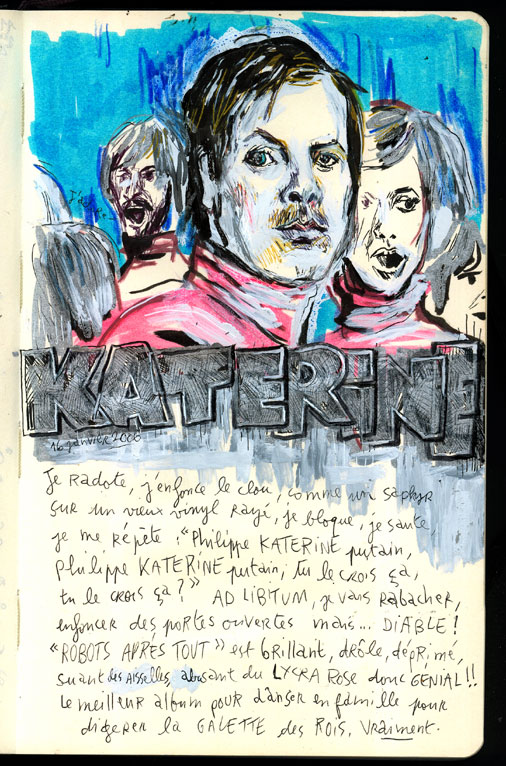 KATERINE
16 janvier 2006
Je Radote, j'enfonce le clou, comme un saphyr
sur un vieux vinyl rayé, je bloque, je saute
je me répète : "Philippe KATERINE putain,
Philippe KATERINE putain, tu le crois ça,
tu le crois ça ?" AD LIBITUM, je vais Rabacher,
enfoncer des portes ouvertes mais... DIABLE !
"ROBOTS APRÈS TOUT" est brillant, drôle, déprimé,
suant des AISSELLES, abusant du LYCRA Rose donc GENIAL !!
Le meilleur album pour danser en famille pour
digerer la GALETTE des ROIS, vraiment.